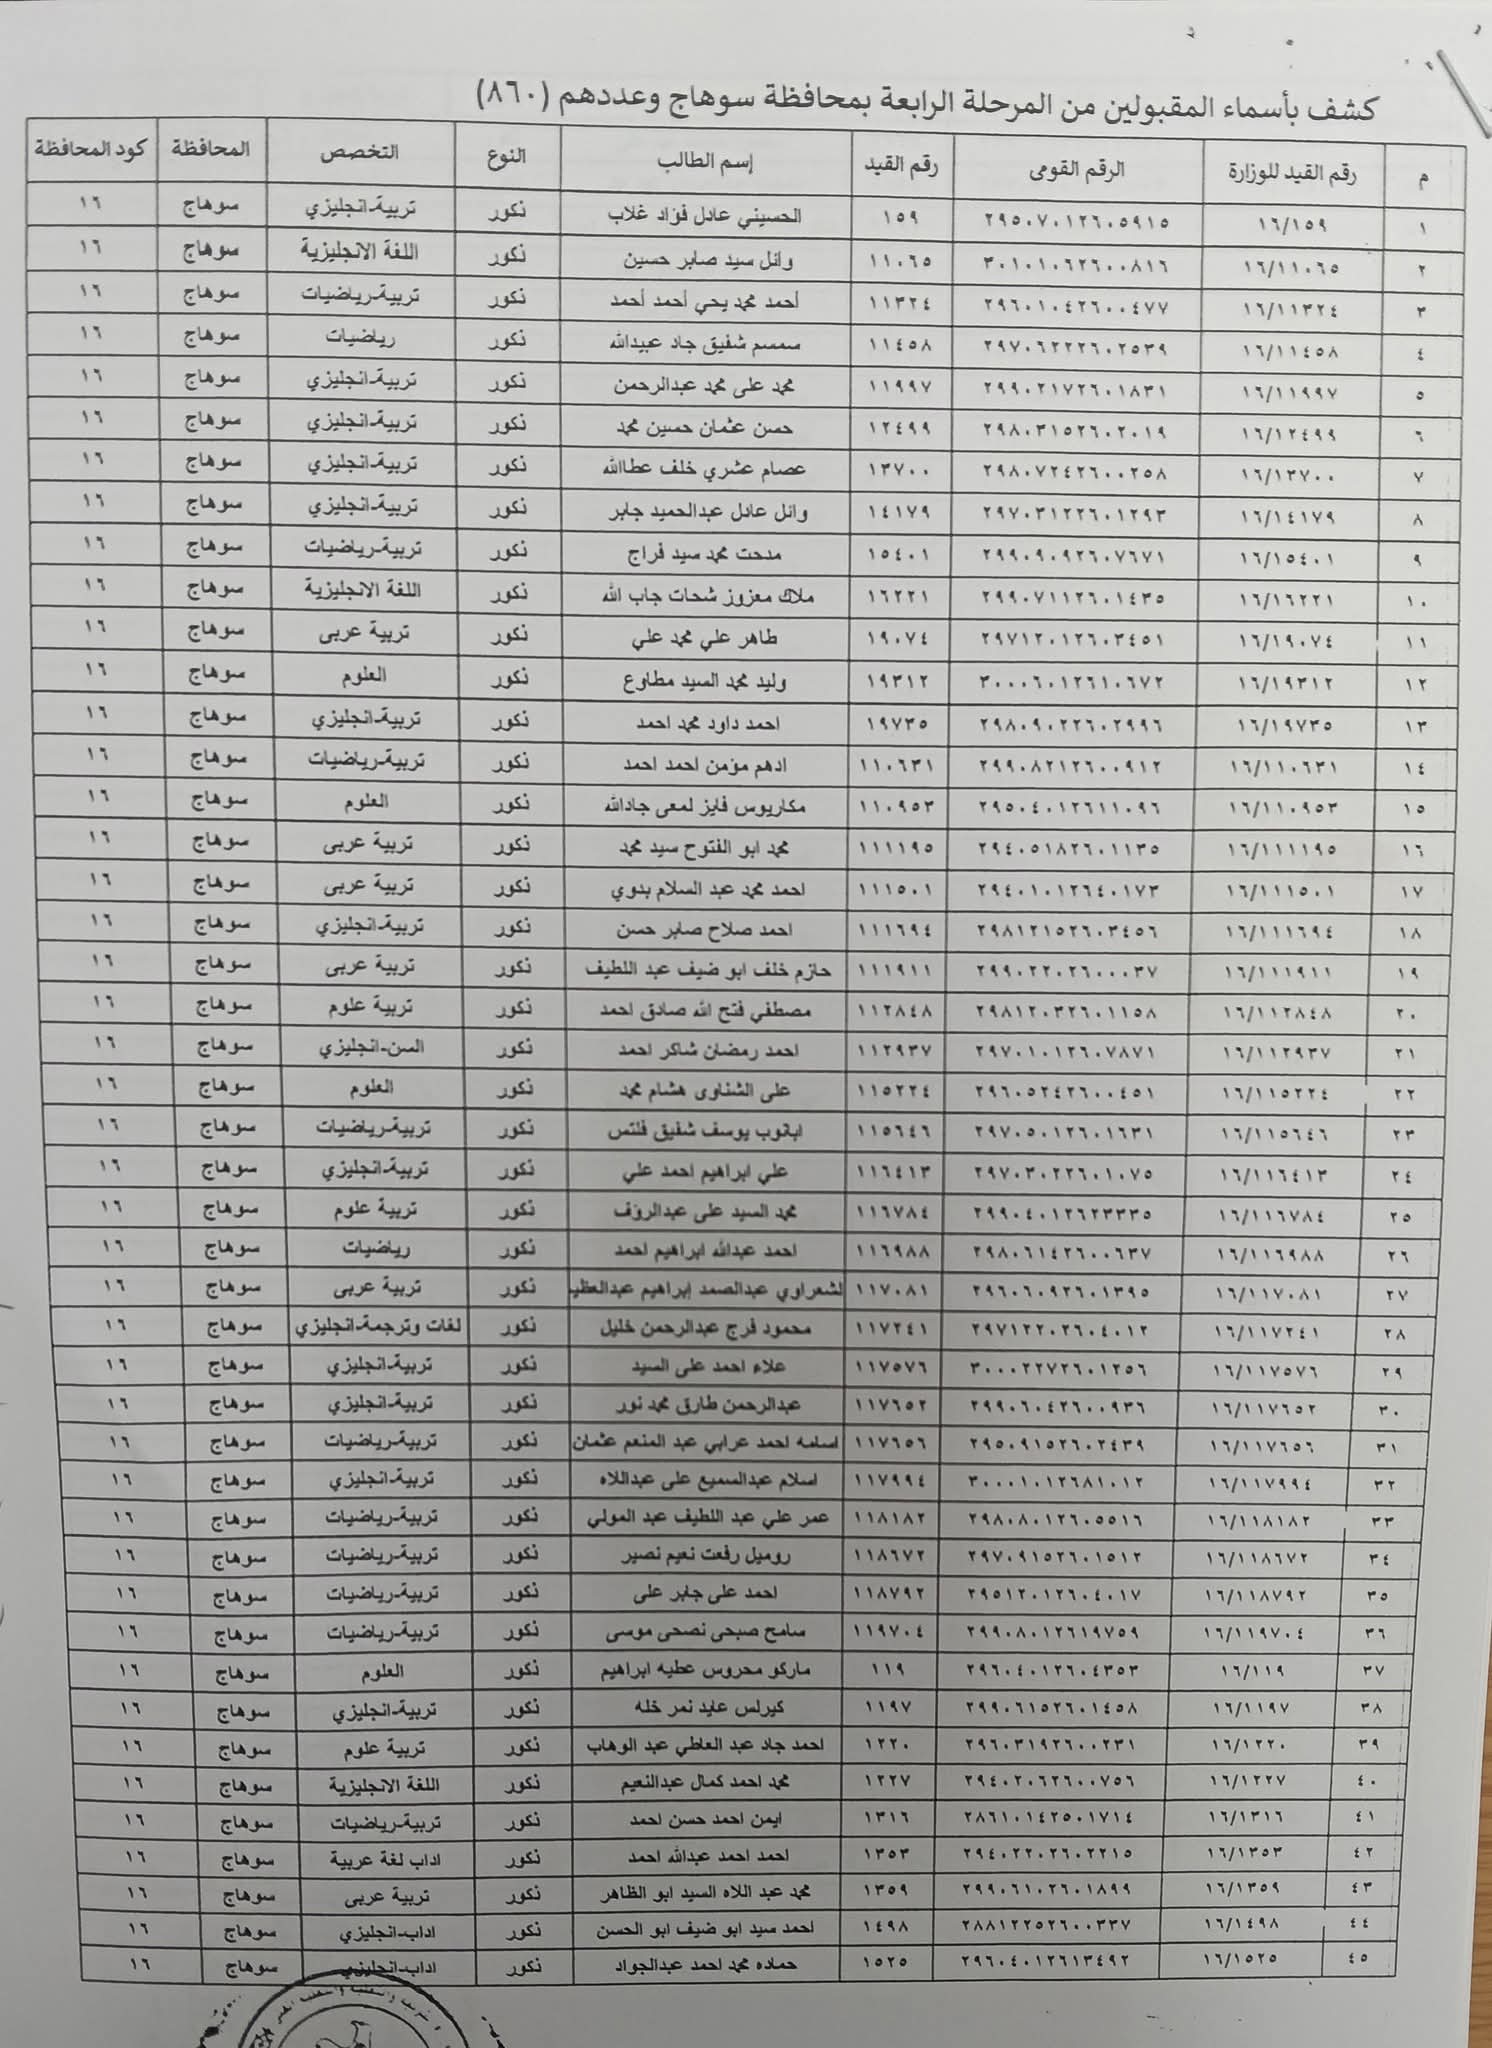 كشف بأسماء المقبولين من المرحلة الرابعة بمحافظة سوهاج وعددهم (٨٦٠)
م رقم القيد للوزارة الرقم القومى رقم القيد إسم الطالب النوع التخصص المحافظة كود المحافظة
١ ١٦/١٥٩ ٢٩٥٠٧٠١٢٦٠٥٩١٥ ١٥٩ الحسيني عادل فؤاد غلاب ذكور تربية-انجليزي سوهاج ١٦
٢ ١٦/١١٠٦٥ ٣٠١٠١٠٦٢٦٠٠٨١٦ ١١٠٦٥ وائل سيد صابر حسين ذكور اللغة الانجليزية سوهاج ١٦
٣ ١٦/١١٣٢٤ ٢٩٦٠١٠٤٢٦٠٠٤٧٧ ١١٣٢٤ أحمد محمد يحي أحمد أحمد ذكور تربية-رياضيات سوهاج ١٦
٤ ١٦/١١٤٥٨ ٢٩٧٠٦٢٢٢٦٠٢٥٣٩ ١١٤٥٨ سمسم شفيق جاد عبيدالله ذكور رياضيات سوهاج ١٦
٥ ١٦/١١٩٩٧ ٢٩٩٠٢١٧٢٦٠١٨٣١ ١١٩٩٧ محمد على محمد عبدالرحمن ذكور تربية-انجليزي سوهاج ١٦
٦ ١٦/١٢٤٩٩ ٢٩٨٠٣١٥٢٦٠٢٠١٩ ١٢٤٩٩ حسن عثمان حسين محمد ذكور تربية-انجليزي سوهاج ١٦
٧ ١٦/١٣٧٠٠ ٢٩٨٠٧٢٤٢٦٠٠٢٥٨ ١٣٧٠٠ عصام عشري خلف عطاالله ذكور تربية-انجليزي سوهاج ١٦
٨ ١٦/١٤١٧٩ ٢٩٧٠٣١٢٢٦٠١٢٩٣ ١٤١٧٩ وائل عادل عبدالحميد جابر ذكور تربية-انجليزي سوهاج ١٦
٩ ١٦/١٥٤٠١ ٢٩٩٠٩٠٩٢٦٠٧٦٧١ ١٥٤٠١ مدحت محمد سيد فراج ذكور تربية-رياضيات سوهاج ١٦
١٠ ١٦/١٦٢٢١ ٢٩٩٠٧١١٢٦٠١٤٣٥ ١٦٢٢١ ملاك معزوز شحات جاب الله ذكور اللغة الانجليزية سوهاج ١٦
١١ ١٦/١٩٠٧٤ ٢٩٧١٢٠١٢٦٠٣٤٥١ ١٩٠٧٤ طاهر علي محمد علي ذكور تربية عربى سوهاج ١٦
١٢ ١٦/١٩٣١٢ ٣٠٠٠٦٠١٢٦١٠٦٧٢ ١٩٣١٢ وليد محمد السيد مطاوع ذكور العلوم سوهاج ١٦
١٣ ١٦/١٩٧٣٥ ٢٩٨٠٩٠٢٢٦٠٢٩٩٦ ١٩٧٣٥ احمد داود محمد احمد ذكور تربية-انجليزي سوهاج ١٦
١٤ ١٦/١١٠٦٣١ ٢٩٩٠٨٢١٢٦٠٠٩١٢ ١١٠٦٣١ ادهم مؤمن احمد احمد ذكور تربية-رياضيات سوهاج ١٦
١٥ ١٦/١١٠٩٥٣ ٢٩٥٠٤٠١٢٦١١٠٩٦ ١١٠٩٥٣ مكاريوس فايز لمعى جادالله ذكور العلوم سوهاج ١٦
١٦ ١٦/١١١١٩٥ ٢٩٤٠٥١٨٢٦٠١١٣٥ ١١١١٩٥ محمد ابو الفتوح سيد محمد ذكور تربية عربى سوهاج ١٦
١٧ ١٦/١١١٥٠١ ٢٩٤٠١٠١٢٦٤٠١٧٣ ١١١٥٠١ احمد محمد عبد السلام بدوي ذكور تربية عربى سوهاج ١٦
١٨ ١٦/١١١٦٩٤ ٢٩٨١٢١٥٢٦٠٣٤٥٦ ١١١٦٩٤ احمد صلاح صابر حسن ذكور تربية-انجليزي سوهاج ١٦
١٩ ١٦/١١١٩١١ ٢٩٩٠٢٢٠٢٦٠٠٠٣٧ ١١١٩١١ حازم خلف ابو ضيف عبد اللطيف ذكور تربية عربى سوهاج ١٦
٢٠ ١٦/١١٢٨٤٨ ٢٩٨١٢٠٣٢٦٠١١٥٨ ١١٢٨٤٨ مصطفي فتح الله صادق احمد ذكور تربية علوم سوهاج ١٦
٢١ ١٦/١١٢٩٣٧ ٢٩٧٠١٠١٢٦٠٧٨٧١ ١١٢٩٣٧ احمد رمضان شاكر احمد ذكور السن-انجليزي سوهاج ١٦
٢٢ ١٦/١١٥٢٢٤ ٢٩٦٠٥٢٤٢٦٠٠٤٥١ ١١٥٢٢٤ على الشناوى هشام محمد ذكور العلوم سوهاج ١٦
٢٣ ١٦/١١٥٦٤٦ ٢٩٧٠٥٠١٢٦٠١٦٣١ ١١٥٦٤٦ ابانوب يوسف شفيق فلتس ذكور تربية-رياضيات سوهاج ١٦
٢٤ ١٦/١١٦٤١٣ ٢٩٧٠٣٠٢٢٦٠١٠٧٥ ١١٦٤١٣ علي ابراهيم احمد علي ذكور تربية-انجليزي سوهاج ١٦
٢٥ ١٦/١١٦٧٨٤ ٢٩٩٠٤٠١٢٦٢٣٣٣٥ ١١٦٧٨٤ محمد السيد على عبدالرؤف ذكور تربية علوم سوهاج ١٦
٢٦ ١٦/١١٦٩٨٨ ٢٩٨٠٦١٤٢٦٠٠٦٣٧ ١١٦٩٨٨ احمد عبدالله ابراهيم احمد ذكور رياضيات سوهاج ١٦
٢٧ ١٦/١١٧٠٨١ ٢٩٦٠٦٠٩٢٦٠١٣٩٥ ١١٧٠٨١ لشعراوي عبدالصمد إبراهيم عبدالعظيم ذكور تربية عربى سوهاج ١٦
٢٨ ١٦/١١٧٢٤١ ٢٩٧١٢٢٠٢٦٠٤٠١٢ ١١٧٢٤١ محمود فرج عبدالرحمن خليل ذكور لغات وترجمة-انجليزي سوهاج ١٦
٢٩ ١٦/١١٧٥٧٦ ٣٠٠٠٢٢٧٢٦٠١٢٥٦ ١١٧٥٧٦ علاء احمد على السيد ذكور تربية-انجليزي سوهاج ١٦
٣٠ ١٦/١١٧٦٥٢ ٢٩٩٠٦٠٤٢٦٠٠٩٣٦ ١١٧٦٥٢ عبدالرحمن طارق محمد نور ذكور تربية-انجليزي سوهاج ١٦
٣١ ١٦/١١٧٦٥٦ ٢٩٥٠٩١٥٢٦٠٢٤٣٩ ١١٧٦٥٦ اسامه احمد عرابي عبد المنعم عثمان ذكور تربية-رياضيات سوهاج ١٦
٣٢ ١٦/١١٧٩٩٤ ٣٠٠٠١٠١٢٦٨١٠١٢ ١١٧٩٩٤ اسلام عبدالسميع على عبداللاه ذكور تربية-انجليزي سوهاج ١٦
٣٣ ١٦/١١٨١٨٢ ٢٩٨٠٨٠١٢٦٠٥٥١٦ ١١٨١٨٢ عمر علي عبد اللطيف عبد المولي ذكور تربية-رياضيات سوهاج ١٦
٣٤ ١٦/١١٨٦٧٢ ٢٩٧٠٩١٥٢٦٠١٥١٢ ١١٨٦٧٢ روميل رفعت نعيم نصير ذكور تربية-رياضيات سوهاج ١٦
٣٥ ١٦/١١٨٧٩٢ ٢٩٥١٢٠١٢٦٠٤٠١٧ ١١٨٧٩٢ احمد على جابر على ذكور تربية-رياضيات سوهاج ١٦
٣٦ ١٦/١١٩٧٠٤ ٢٩٩٠٨٠١٢٦١٩٧٥٩ ١١٩٧٠٤ سامح صبحى نصحى موسى ذكور تربية-رياضيات سوهاج ١٦
٣٧ ١٦/١١٩ ٢٩٦٠٤٠١٢٦٠٤٣٥٣ ١١٩ ماركو محروس عطيه ابراهيم ذكور العلوم سوهاج ١٦
٣٨ ١٦/١١٩٧ ٢٩٩٠٦١٥٢٦٠١٤٥٨ ١١٩٧ كيرلس عايد نمر خله ذكور تربية-انجليزي سوهاج ١٦
٣٩ ١٦/١٢٢٠ ٢٩٦٠٣١٩٢٦٠٠٢٣١ ١٢٢٠ احمد جاد عبد العاطي عبد الوهاب ذكور تربية علوم سوهاج ١٦
٤٠ ١٦/١٢٢٧ ٢٩٤٠٢٠٦٢٦٠٠٧٥٦ ١٢٢٧ محمد احمد كمال عبدالنعيم ذكور اللغة الانجليزية سوهاج ١٦
٤١ ١٦/١٣١٦ ٢٨٦١٠١٤٢٥٠١٧١٤ ١٣١٦ ايمن احمد حسن احمد ذكور تربية-رياضيات سوهاج ١٦
٤٢ ١٦/١٣٥٣ ٢٩٤٠٢٢٠٢٦٠٢٢١٥ ١٣٥٣ احمد احمد عبدالله احمد ذكور اداب لغة عربية سوهاج ١٦
٤٣ ١٦/١٣٥٩ ٢٩٩٠٦١٠٢٦٠١٨٩٩ ١٣٥٩ محمد عبد اللاه السيد ابو الظاهر ذكور تربية عربى سوهاج ١٦
٤٤ ١٦/١٤٩٨ ٢٨٨١٢٢٥٢٦٠٠٣٣٧ ١٤٩٨ احمد سيد ابو ضيف ابو الحسن ذكور اداب-انجليزي سوهاج ١٦
٤٥ ١٦/١٥٢٥ ٢٩٦٠٤٠١٢٦١٣٤٩٢ ١٥٢٥ حماده محمد احمد عبدالجواد ذكور اداب-انجليزي سوهاج ١٦